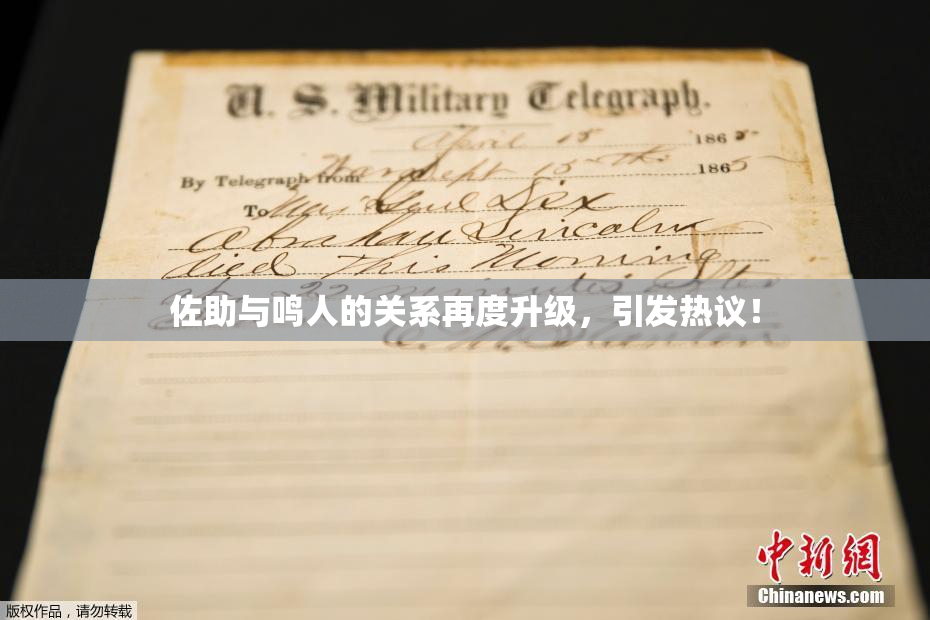 U. S. Military Telegraph.
April 15 1865
By Telegraph from War Dept 15th 1865
To Maj Genl Dix
Abraham Lincoln
died This Morning
at 22 minutes after
佐助与鸣人的关系再度升级，引发热议！
E. M. Stanton
中新網
Chinanews.com
版权作品，请勿转载